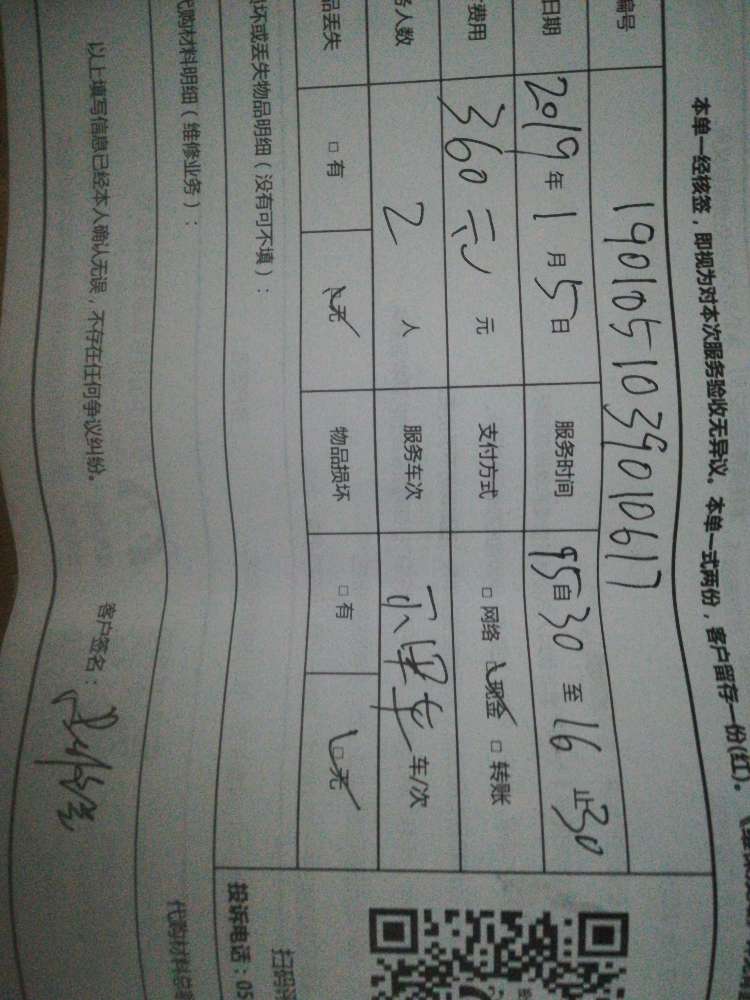 本单一经核签，即视为对本次服务验收无异议。本单一式两份，客户留存一份(红)。
编号 1901051039010617
日期 2019年1月5日 服务时间 自 30 至 16 止 30
费用 360元 元 支付方式 □ 网络 □ 现金 □ 转账
务人数 2 人 服务车次 车/次
品丢失 □ 有 □ 无 物品损坏 □ 有 □ 无
损坏或丢失物品明细（没有可不填）：
代购材料明细（维修业务）：
以上填写信息已经本人确认无误，不存在任何争议纠纷。
客户签名：
扫码
投诉电话：05
代购材料总